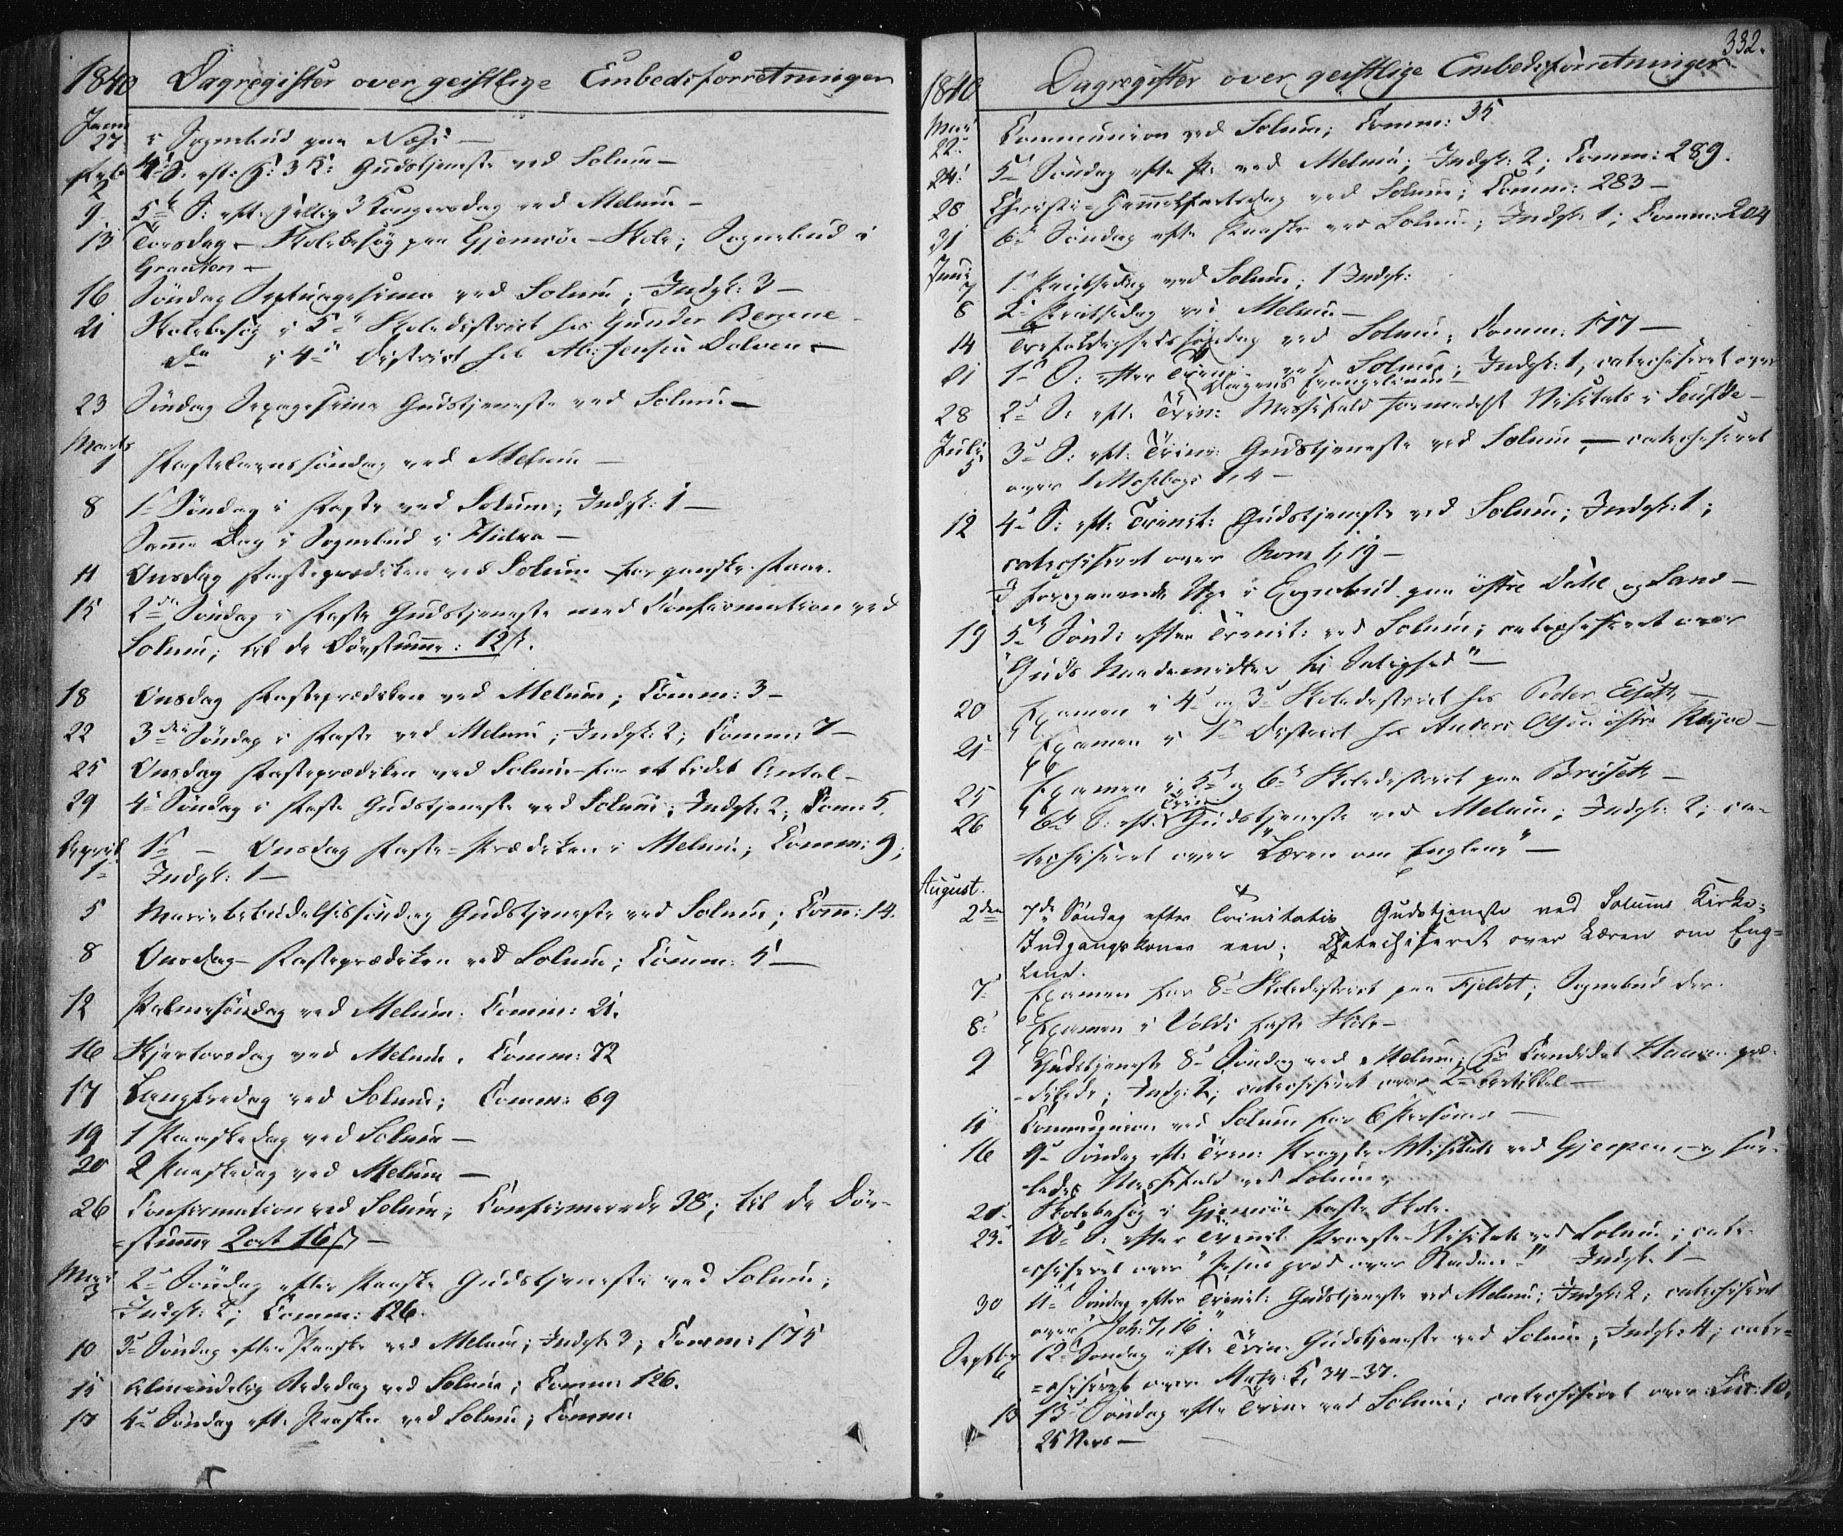 1840 Dagregister over geistlige Embedsforretninger
Januar
27 i Sognebud paa Næs
Feb. 2 4de S. eft: H: 3 K: Gudstjeneste ved Solum
9 5te S: eft: Hellig 3 Kongersdag ved Melum
13 Torsdag Skolebesøg paa Gjemsøe Skole; Sognebud i
Graaten
16 Søndag Septuagesima ved Solum; Indgk: 3
21 Skolebesøg i 5te Skoledistrict hos Gunder Bergene
do i 4de District hos Ab: Jensen Dolven
23 Søndag Sexagesima Gudstjeneste ved Solum
Marts
1 Fastelavnssøndag ved Melum
8 1ste Søndag i Faste ved Solum; Indgk: 1
Samme Dag i Sognebud i
11 Onsdag Fasteprædiken ved Solum for ganske Faae.
15 2den Søndag i Faste Gudstjeneste med Confirmation ved
Solum; til de Døvstumme: 12 ß.
18 Onsdag Fasteprædiken ved Melum; Comm: 3
22 3die Søndag i Faste ved Melum; Indgk: 2; Comm: 7
25 Onsdag Fasteprædiken ved Solum for et lidet Antal
29 4de Søndag i Faste Gudstjeneste ved Solum; Indgk: 2; Comm: 5.
April
1ste Onsdag Faste-Prædiken i Melum; Comm: 9;
Indgk: 1
5 Mariæbebudelsessøndag Gudstjeneste ved Solum; Comm: 14.
8 Onsdag Fasteprædiken ved Solum; Comm: 5
12 Palmesøndag ved Melum. Comm: 21.
16 Skjertorsdag ved Melum. Comm: 72
17 Langfredag ved Solum; Comm: 69
19 1 Paaskedag ved Solum
20 2 Paaskedag ved Melum
26 Confirmation ved Solum; Confirmerede 38; til de Døv-
stumme 2 ort 16 ß
Mai
3 2den Søndag efter Paaske Gudstjeneste ved Solum;
Indgk: 2; Comm: 126.
10 3die Søndag efter Paaske ved Melum; Indgk: 3; Comm: 175
15 Almindelig Bededag ved Solum; Comm: 126.
17 4de Søndag eft: Paaske ved Solum; Comm:
332.
1840 Dagregister over geistlige Embedsforretninger
Mai
22 Communion ved Solum; Comm: 35
24 5te Søndag efter P: ved Melum; Indgk: 2; Comm: 289.
28 Christi-Himmelfartsdag ved Solum; Comm: 283
31 6te Søndag efter Paaske ved Solum; Indgk: 1; Comm: 204
Juni
7 1ste Pintsedag ved Solum; 1 Indgk:
8 2den Pintsedag ved Melum
14 Trefoldighedssøndag ved Solum, Comm: 177
21 1ste S: efter Trinit: ved Solum; Indgk: 1, catechiseret over
Dagens Evangelium
28 2den S: eft: Trin: Messefald formedelst Visitats i
Juli
5 3die S: eft: Trin: Gudstjeneste ved Solum catechiseret
over 1 Mosebog 1, 4
12 4de S: eft: Trinit: Gudstjeneste ved Solum; Indgk: 1;
catechiseret over Rom 1, 19
I foregaaende Uge i Sognebud paa østre Dahl og
19 5te Sønd: efter Trinit: ved Solum; catechiseret over
"Guds Naademidler til Salighed"
20 Examen i 4de og 3die Skoledistrict hos Peder
21 Examen i 1ste District hos Anders Olsen østre
25 Examen i 5te og 6te Skoledistrict paa Bruseth
26 6te S: eft: Trin: Gudstjeneste ved Melum; Indgk: 2; ca-
techiseret over "Læren om Englene"
August.
2den 7de Søndag efter Trinitatis Gudstjeneste ved Solums Kirke;
Indgangskoner een; Catechiseret over Læren om Eng-
lene.
7 Examen for 8de Skoledistrict paa Fjeldet; Sognebud der.
8 Examen i Volds faste Skole
9 Gudstjeneste 8de Søndag ved Melum; Hr Candidat præ-
dikede; Indg: 2; catechiseret over 2den Artikkel
11 Communion ved Solum for 6 Personer
16 9de Søndag eft: Trin: Provste-Visitats ved Gjerpen og saa-
ledes Messefald ved Solum
21 Skolebesøg i Gjemsøe faste Skole.
23 10de S: efter Trinit: Provste-Visitats ved Solum; cate-
chiseret over "Jesus græd over Staden" Indgk: 1
30 11te Søndag efter Trinit: Gudstjeneste ved Melum; Indgk: 2; catechiseret
over "Joh: 7, 16".
Septbr
6 12te Søndag eft: Trin: Gudstjeneste ved Solum; Indgk: 4; cate-
chiseret over Math: 5, 34-37.
13 13de Søndag efter Trin: ved Solum; catechiseret over Luc: 10,
25 Vers